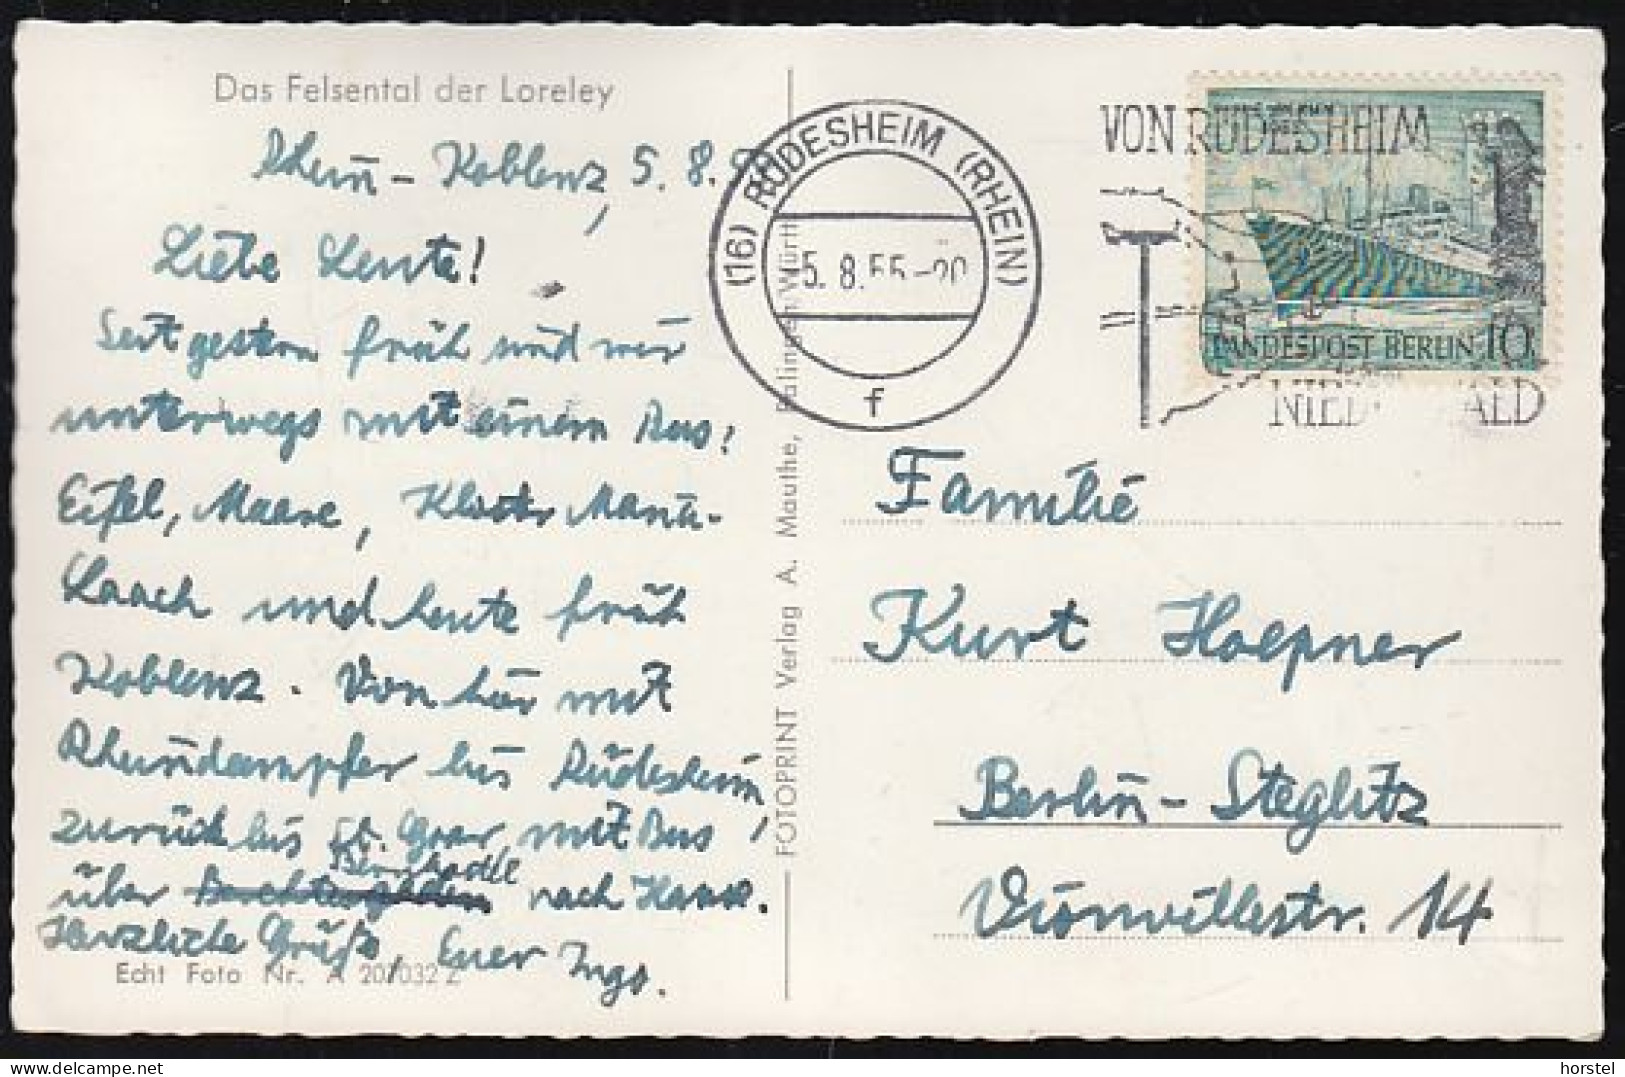 Das Felsental der Loreley
Rhein-Koblenz, 5. 8.
Liebe Leute!
Seit gestern früh sind wir
unterwegs mit einem Bus!
Eifel, Maare, Kloster Maria-
Laach und heute früh
Koblenz. Von hier mit
Rheindampfer bis Rüdesheim,
zurück bis St. Goar, mit Bus
Bernkastel
über nach Hause.
Herzliche Grüße, Euer Ingo.
Echt Foto Nr. A 20/032 Z
FOTOPRINT Verlag A. Mauthe, Balingen Württ
(16) RÜDESHEIM (RHEIN)
5. 8. 55-20
f
VON RÜDESHEIM
LANDESPOST BERLIN 10
NIED WALD
Familie
Kurt Hoepner
Berlin-Steglitz
Vionvillestr. 14
horstel